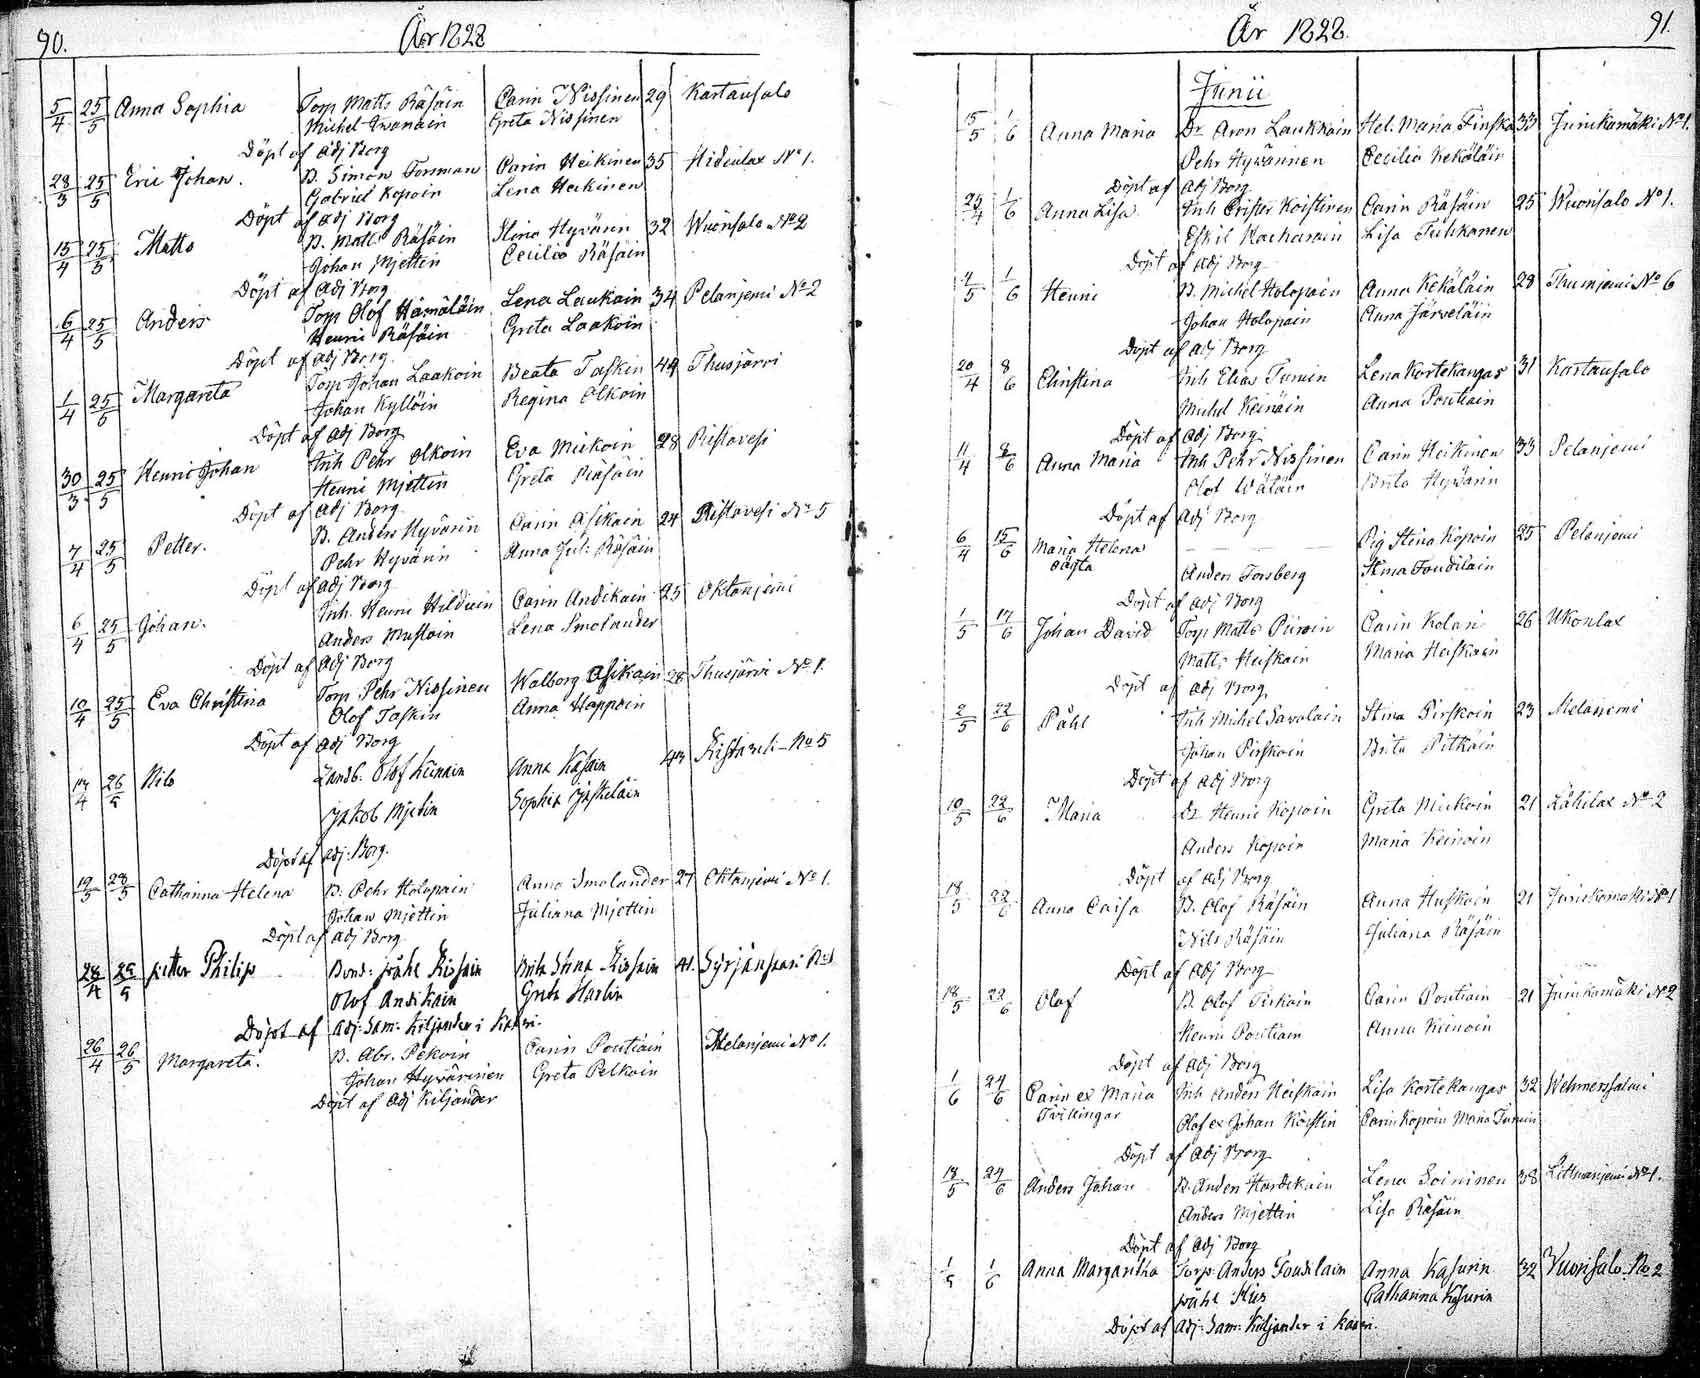 90.
År 1828
5/4 25/5 Anna Sophia Torp Matts Räsäin Carin Nissinen 29 Kartausalo
Michel Iwanain Greta Nissinen
Döpt af adj Borg
28/3 25/5 Eric Johan. B. Simon Forsman Carin Heikinen 35 Hidenlax No 1.
Gabriel Kopoin Lena Heikinen
Döpt af adj Borg
15/4 25/5 Matts B. Matts Räsäin Stina Hyvärin 32 Wuorisalo No 2
Johan Mjettin Cecilia Räsäin
Döpt af adj Borg
6/4 25/5 Anders Torp Olof Hämäläin Lena Laukain 34 Pelanjemi No 2
Henric Räsäin Greta Laakoin
Döpt af adj Borg
1/4 25/5 Margareta Torp Johan Laakoin Beata Taskin 44 Thusjärvi
Johan Kyllöin Regina Olkoin
Döpt af adj Borg
30/3 25/5 Henric Johan Inh Pehr Olkoin Eva Miekoin 28 Ristavesi
Henric Mjettin Greta Räsäin
Döpt af adj Borg
7/4 25/5 Petter. B. Anders Hyvärin Carin Asikain 24 Ristavesi No 5
Pehr Hyvärin Anna Jul: Räsäin
Döpt af adj Borg
6/4 25/5 Johan. Inh. Henric Hilduin Carin Andikain 25 Oktanjemi
Anders Mustoin Lena Smolander
Döpt af adj Borg
10/4 25/5 Eva Christina Torp Pehr Nissinen Walborg Asikain 28 Thusjärvi No 1.
Olof Taskin Anna Happoin
Döpt af adj Borg
26/5 Nils Landb: Olof Keinain Anna Käsäin 43 No 5
Jakob Mjetin Sophia Jäskeläin
Döpt af adj: Borg.
19/5 28/5 Catharina Helena B. Pehr Holopain Anna Smolander 27 Oktanjemi No 1.
Johan Mjettin Juliana Mjettin
Döpt af adj Borg
28/4 29/5 petter Philip Bond: påhl Kissain Brita Stina Kissain 41. Syrjänsaari No 1
Olof Andikain Greta Harlin
Döpt af adj: Sam: Kiljander i
26/4 26/5 Margareta. B. Abr. Pekoin Carin Pontiain Melanjemi No 1.
Johan Hyvärinen Greta Pelkoin
Döpt af adj Kiljander
År 1828.
91.
Junii
15/5 1/6 Anna Maria Dr. Aron Laukkain Hel. Maria Finska 33 Junikamäki No 1.
Pehr Hyvärinen Cecilia Kekäläin
Döpt af adj Borg
25/4 1/6 Anna Lisa. Inh Crister Koistinen Carin Räsäin 25 Wuorisalo No 1.
Eskil Lisa Tuhkanen
Döpt af adj Borg
4/5 1/6 Henric B. Michel Holopain Anna Kekäläin 28 Thumjemi No 6
Johan Holopain Anna Järveläin
Döpt af adj Borg
20/4 8/6 Christina Inh Elias Tunnin Lena Kortekangas 31 Kartausalo
Michel Keinäin Anna Pontiain
Döpt af adj Borg
11/4 8/6 Anna Maria Inh Pehr Nissinen Carin Heikinen 33 Pelanjemi
Olof Wäläin Brita Hyvärin
Döpt af adj Borg
6/4 15/6 Maria Helena Pig Stina Kopoin 25 Pelanjemi
oägta Anders Forsberg Stina Toudilain
Döpt af adj Borg
1/5 17/6 Johan David Torp Matts Piiroin Carin Kolari 26 Ukonlax
Matts Heiskain Maria Heiskain
Döpt af adj Borg,
2/5 22/6 Påhl Inh Michel Savolain Stina Pirskoin 23 Melanjemi
Johan Pirskain Brita Pitkäin
Döpt af adj Borg
10/5 22/6 Maria Dr Henric Kopoin Greta Miekoin 21 Lähilax No 2
Anders Kopoin Maria Keinoin
Döpt af adj Borg
18/5 22/6 Anna Caisa B. Olof Räsäin Anna Huskoin 21 Junikamäki No 1
Nils Räsäin Juliana Räsäin
Döpt af adj Borg
18/5 22/6 Olof B. Olof Tiskain Carin Pontiain 21 Junikamäki No 2
Henric Pontiain Anna Keinoin
Döpt af adj Borg
1/6 24/6 Carin ex Maria Inh Anders Heiskain Lisa Kortekangas 32 Wehmerssalmi
Tvillingar Olof ex Johan Köistin Carin Kopoin Maria Tunnin
Döpt af adj Borg
18/5 24/6 Anders Johan B. Anders Hardikain Lena Soininen 38 Litmanjemi No 1.
Anders Mjettin Lisa Räsäin
Döpt af adj Borg
1/5 1/6 Anna Margaretha Torp: Anders Toudilain Anna Käsurin 32 Vuorisalo. No 2
påhl Catharina Käsurin
Döpt af adj: Sam: Kiljander i